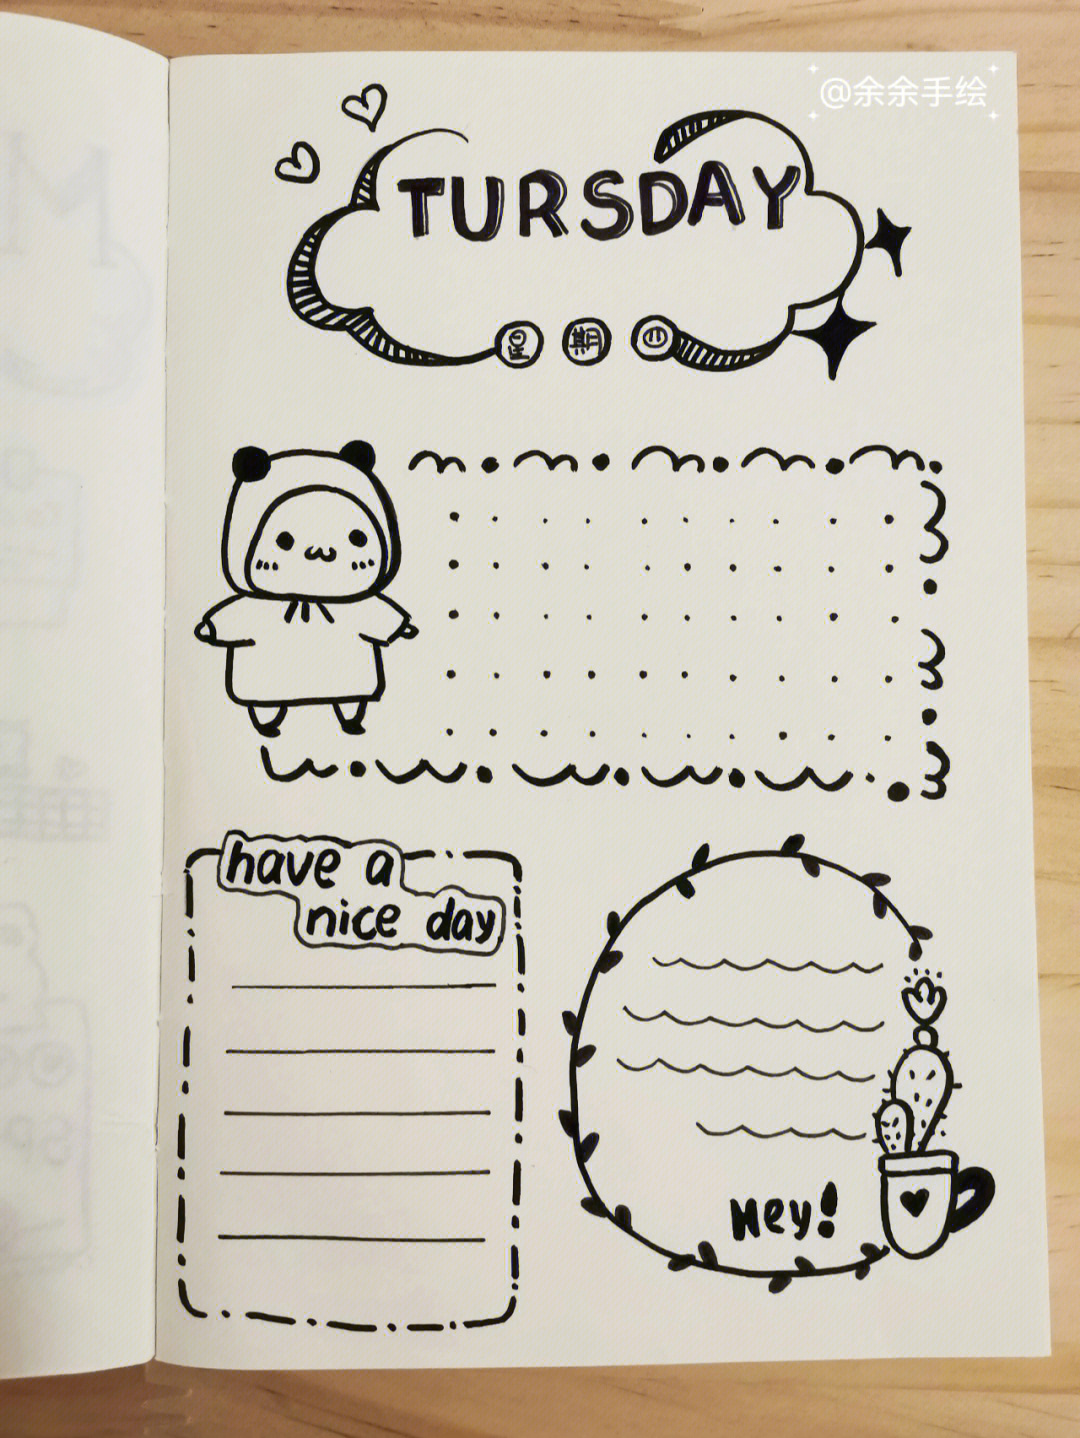 @余余手绘
TURSDAY
星期二
have a
nice day
Hey!